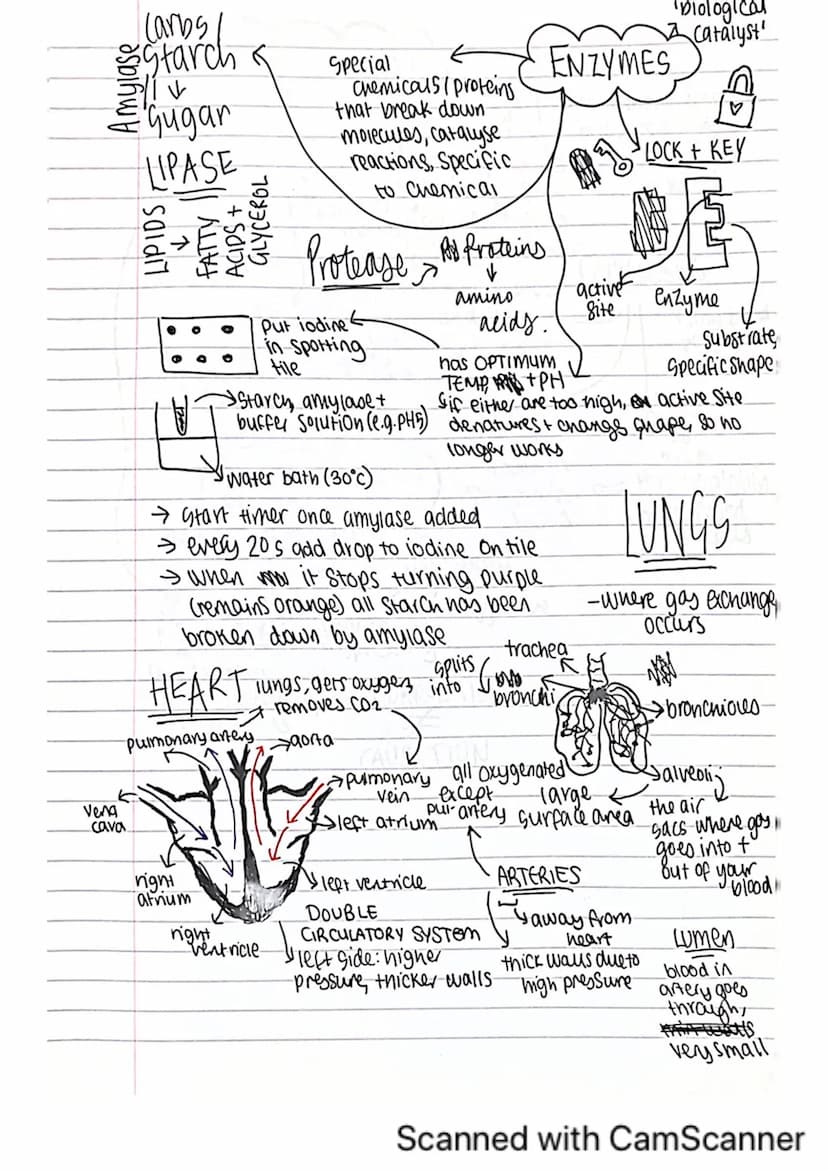 'biological
catalyst'
ENZYMES
Carbs/
Starch
Amylase
Sugar
Special
chemicals/proteins
that break down
molecules, catalyse
reactions, specific
to chemical
LOCK + KEY
active
site
enzyme
substrate,
specific shape
LIPASE
LIPIDS
FATTY
ACIDS +
GLYCEROL
Protease
Proteins
amino
acids.
has OPTIMUM
TEMP + PH
if either are too high, active site
denatures + changes shape, so no
longer works
put iodine
in spotting
tile
starch, amylase +
buffer solution (e.g. PH5)
water bath (30°C)
→ start timer once amylase added
→ every 20s add drop to iodine on tile
→ when it stops turning purple
(remains orange) all starch has been
broken down by amylase
LUNGS
- where gas exchange
occurs
trachea
splits
into
bronchi
bronchioles
alveoli
the air
sacs where gas
goes into +
out of your
blood
large
surface area
HEART
lungs, gets oxygen,
removes CO2
pulmonary artery
aorta
pulmonary
vein
left atrium
vena
cava
right
atrium
right
ventricle
left ventricle
DOUBLE
CIRCULATORY SYSTEM
left side: higher
pressure, thicker walls
all oxygenated
except
pul. artery
ARTERIES
away from
heart
thick walls due to
high pressure
Lumen
blood in
artery goes
through,
very small
Scanned with CamScanner